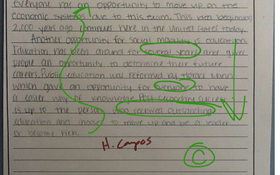 Everyone has an opportunity to move up on the
economic system due to this exam. This been beginning
2,000 years ago continues here in the United States today.
Another opportunity for social mobility is education.
Education has been around for several years and gives
people an opportunity to determine their future
careers. Public education was reformed by Horace Mann
which gave an opportunity for everyone to have
a equal way of knowledge. Post secondary
is up to the person who receives outstanding
education and
H. Campos
C